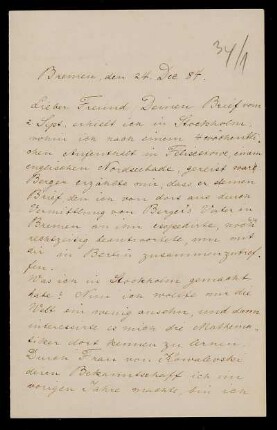 34/1
Bremen, den 24. Dec 84.
Lieber Freund! Deinen Brief vom
2 Sept. erhielt ich in Stockholm,
wohin ich nach einem
chen Aufenthalt in Felixstowe, einem
englischen Nordseebade, gereist war.
Berger erzählte mir, dass er seinen
Brief, den ich von dort aus durch
Vermittlung von Berger's Vater in
Bremen an ihn expedirte, noch
rechtzeitig beantwortete, um mit
dir in Berlin zusammenzutref-
fen.
Was ich in Stockholm gemacht
habe? Nun ich wollte mir die
Welt ein wenig ansehn, und dann
interessirte es mich die Mathema-
tiker dort kennen zu lernen.
Durch Frau von Kowalevski
deren Bekanntschaft ich im
vorigen Jahre machte, bin ich